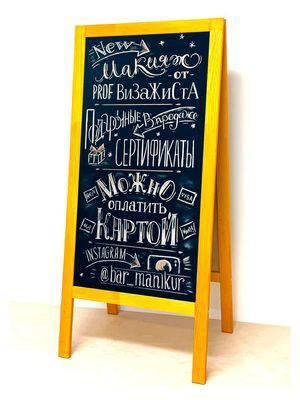 New
Макияж
-от-
PROF ВиЗаЖиСТа
Подарочные В продаже
СЕРТИФИКАТЫ
МоЖНО
оплатить
КАРТОЙ
INSTAGRAM
@bar_manikur